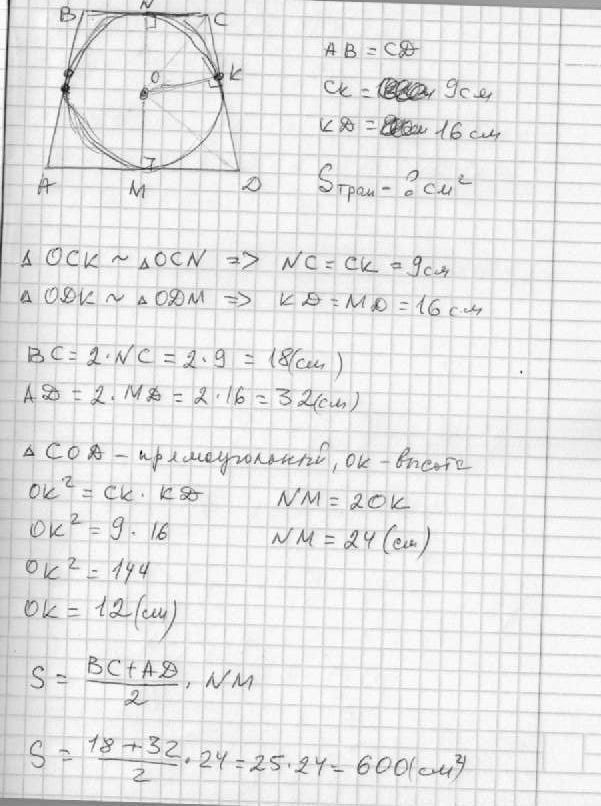 B N C
O K
A M D
AB = CD
CK = 9см
KD = 16 см
Sтрап - ? см²
△ OCK ~ △OCN => NC = CK = 9см
△ ODK ~ △ODM => KD = MD = 16 см
BC = 2 · NC = 2 · 9 = 18(см)
AD = 2 · MD = 2 · 16 = 32(см)
△ COD - прямоугольный, OK - высота
OK² = CK · KD NM = 2OK
OK² = 9 · 16 NM = 24 (см)
OK² = 144
OK = 12 (см)
S = (BC + AD)/2 · NM
S = (18 + 32)/2 · 24 = 25 · 24 = 600(см²)